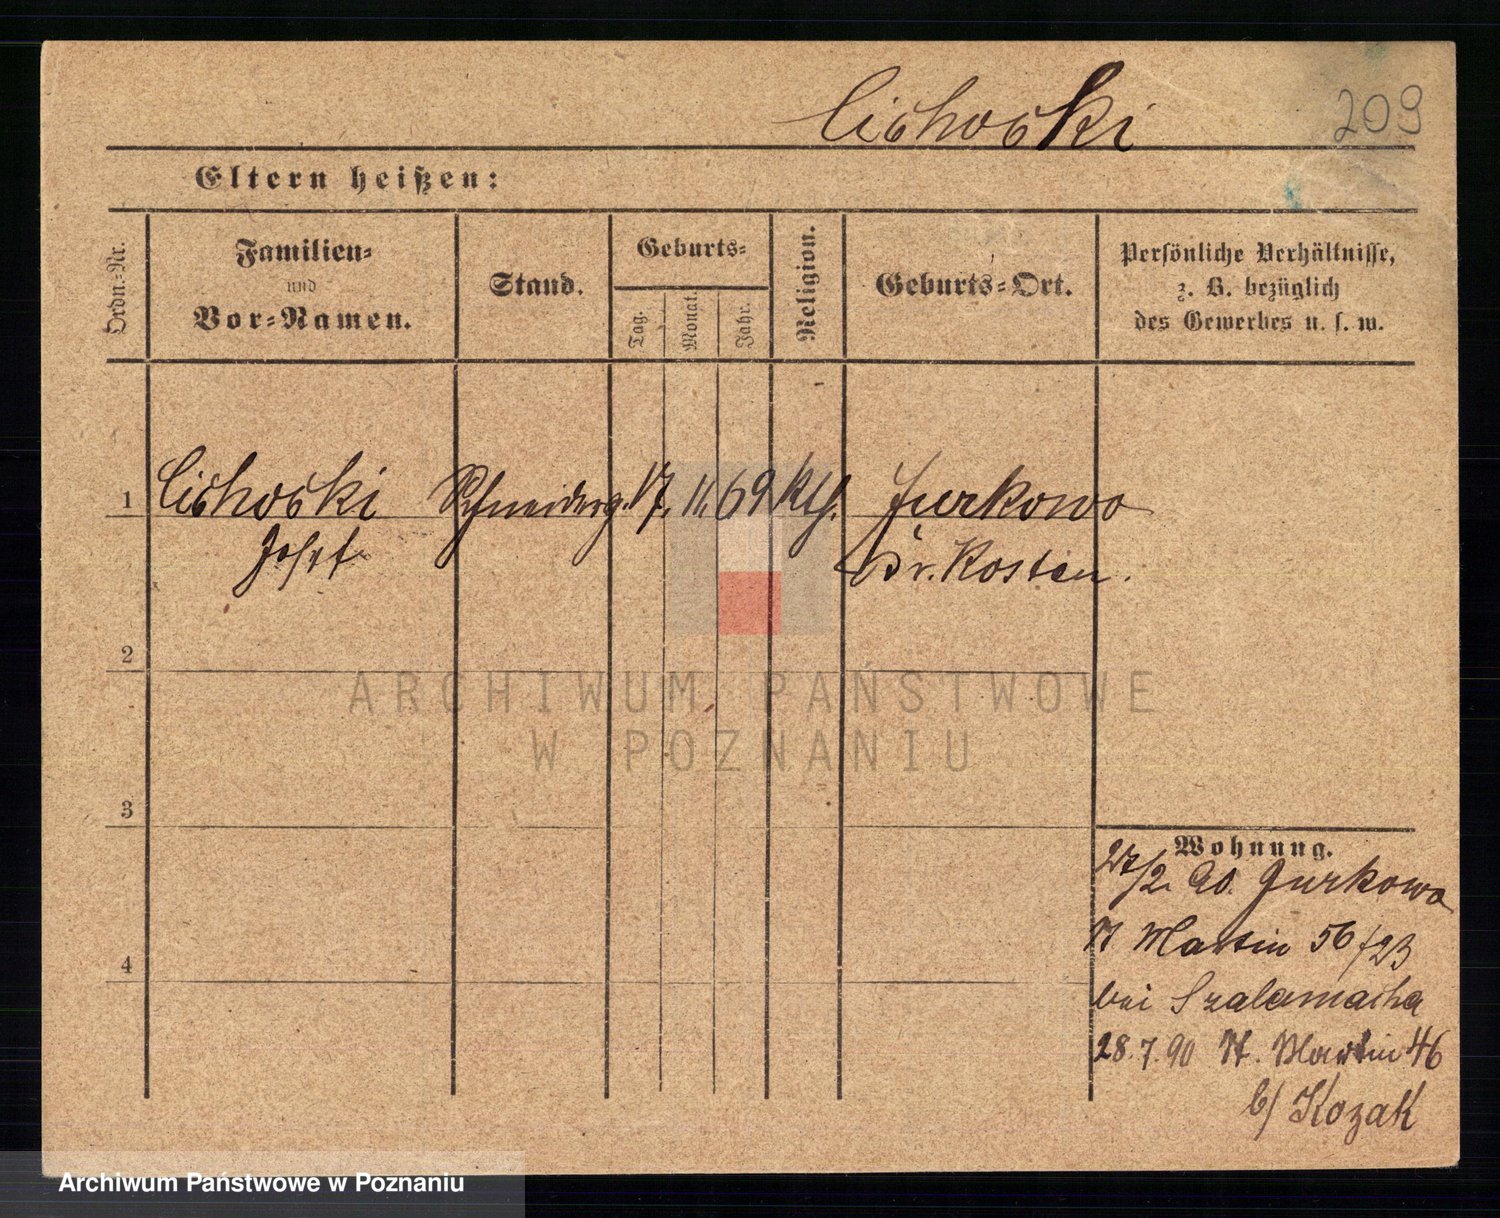 Cichocki
209
Eltern heißen:
Ordn.-Nr.
Familien-
und
Vor-Namen.
Stand.
Geburts-
Tag.
Monat.
Jahr.
Religion.
Geburts-Ort.
Persönliche Verhältnisse,
z. B. bezüglich
des Gewerbes u. s. w.
1 Cichocki Schneiderg. 17. 11. 69 Kth. Jurkowo
Josef Kr. Kosten.
2
ARCHIWUM PAŃSTWOWE
W POZNANIU
3
Wohnung.
27/2. 90. Jurkowo
St Martin 56/23
bei Szalamacha
4
28.7.90 St. Martin 46
b/ Kozak
Archiwum Państwowe w Poznaniu